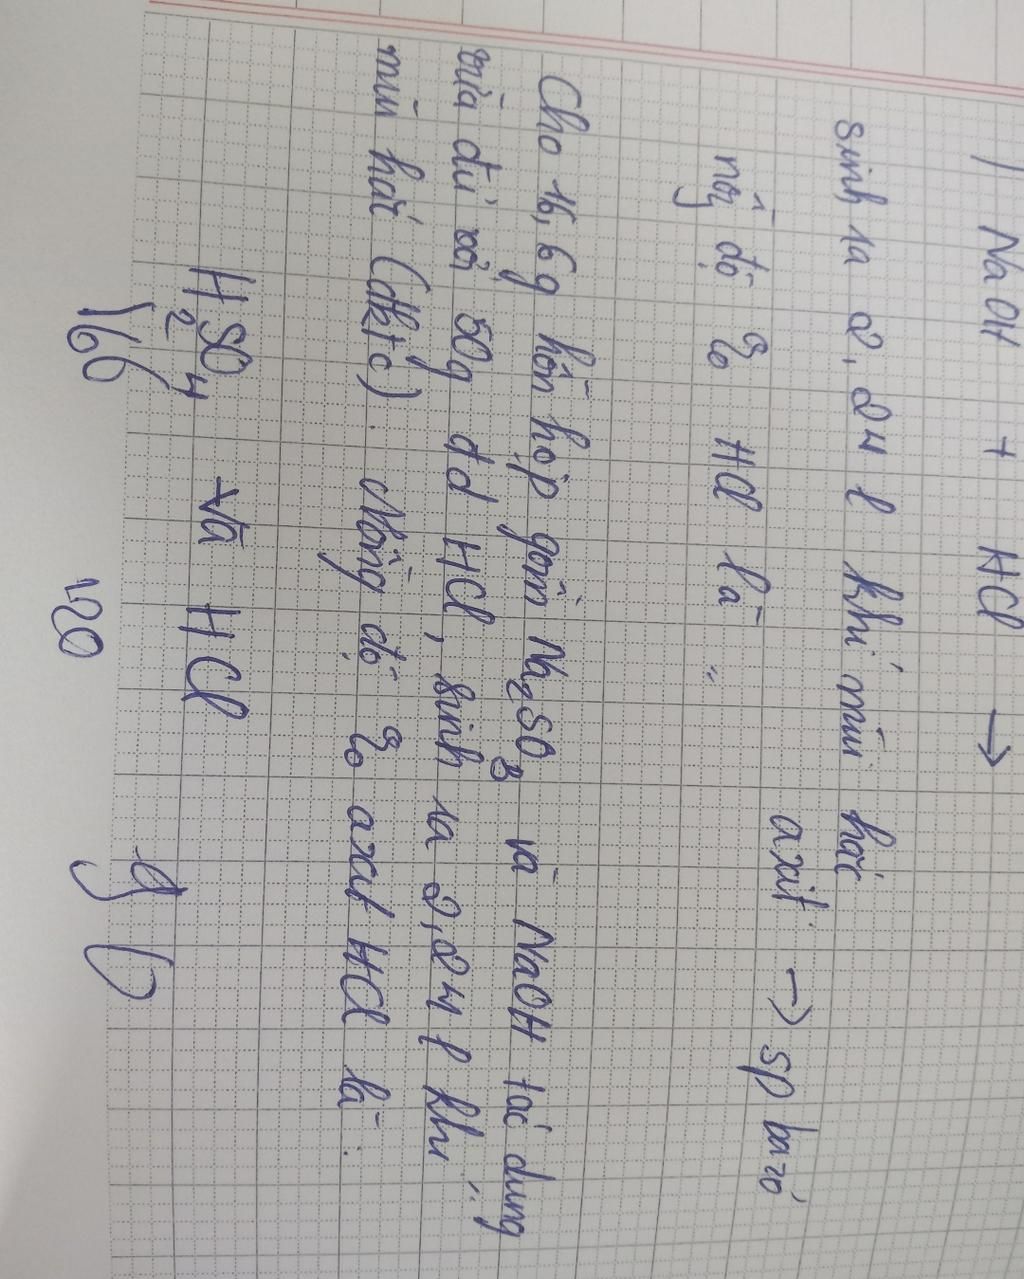 NaOH + HCl →
sinh ra 2,24 l khí mùi hắc
axit → sp bazơ
nồng độ % HCl là
Cho 16,6g hỗn hợp gồm Na₂SO₃ và NaOH tác dụng
vừa đủ với 50g dd HCl, sinh ra 2,24 l khí
mùi hắc (đktc). Nồng độ % axit HCl là:
H₂SO₄ và HCl
166 120